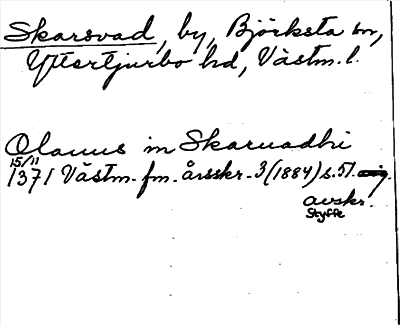 Skarsvad, by, Björksta sn,
Yttertjurbo hd, Västm. l.
Olauus in Skaruadhi
15/11
1371 Västm. fm. årsskr. 3 (1884) s. 51.
avskr.
Styffe